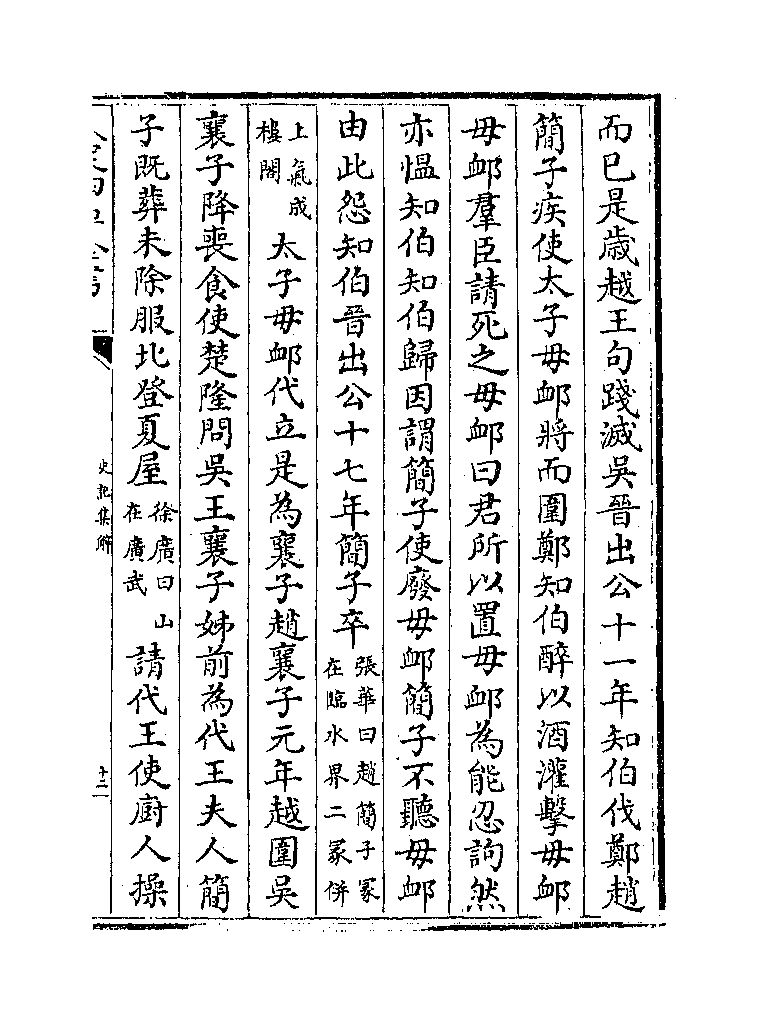 而已是歲越王句踐滅吳晉出公十一年知伯伐鄭趙
簡子疾使太子毋卹將而圍鄭知伯醉以酒灌擊毋卹
毋卹羣臣請死之毋卹曰君所以置毋卹為能忍訽然
亦慍知伯知伯歸因謂簡子使廢毋卹簡子不聽毋卹
由此怨知伯晉出公十七年簡子卒
張華曰趙簡子冢
在臨水界二冢併
上氣成
樓閣
太子毋卹代立是為襄子趙襄子元年越圍吳
襄子降喪食使楚隆問吳王襄子姊前為代王夫人簡
子既葬未除服北登夏屋
徐廣曰山
在廣武
請代王使廚人操
史記集解
十二